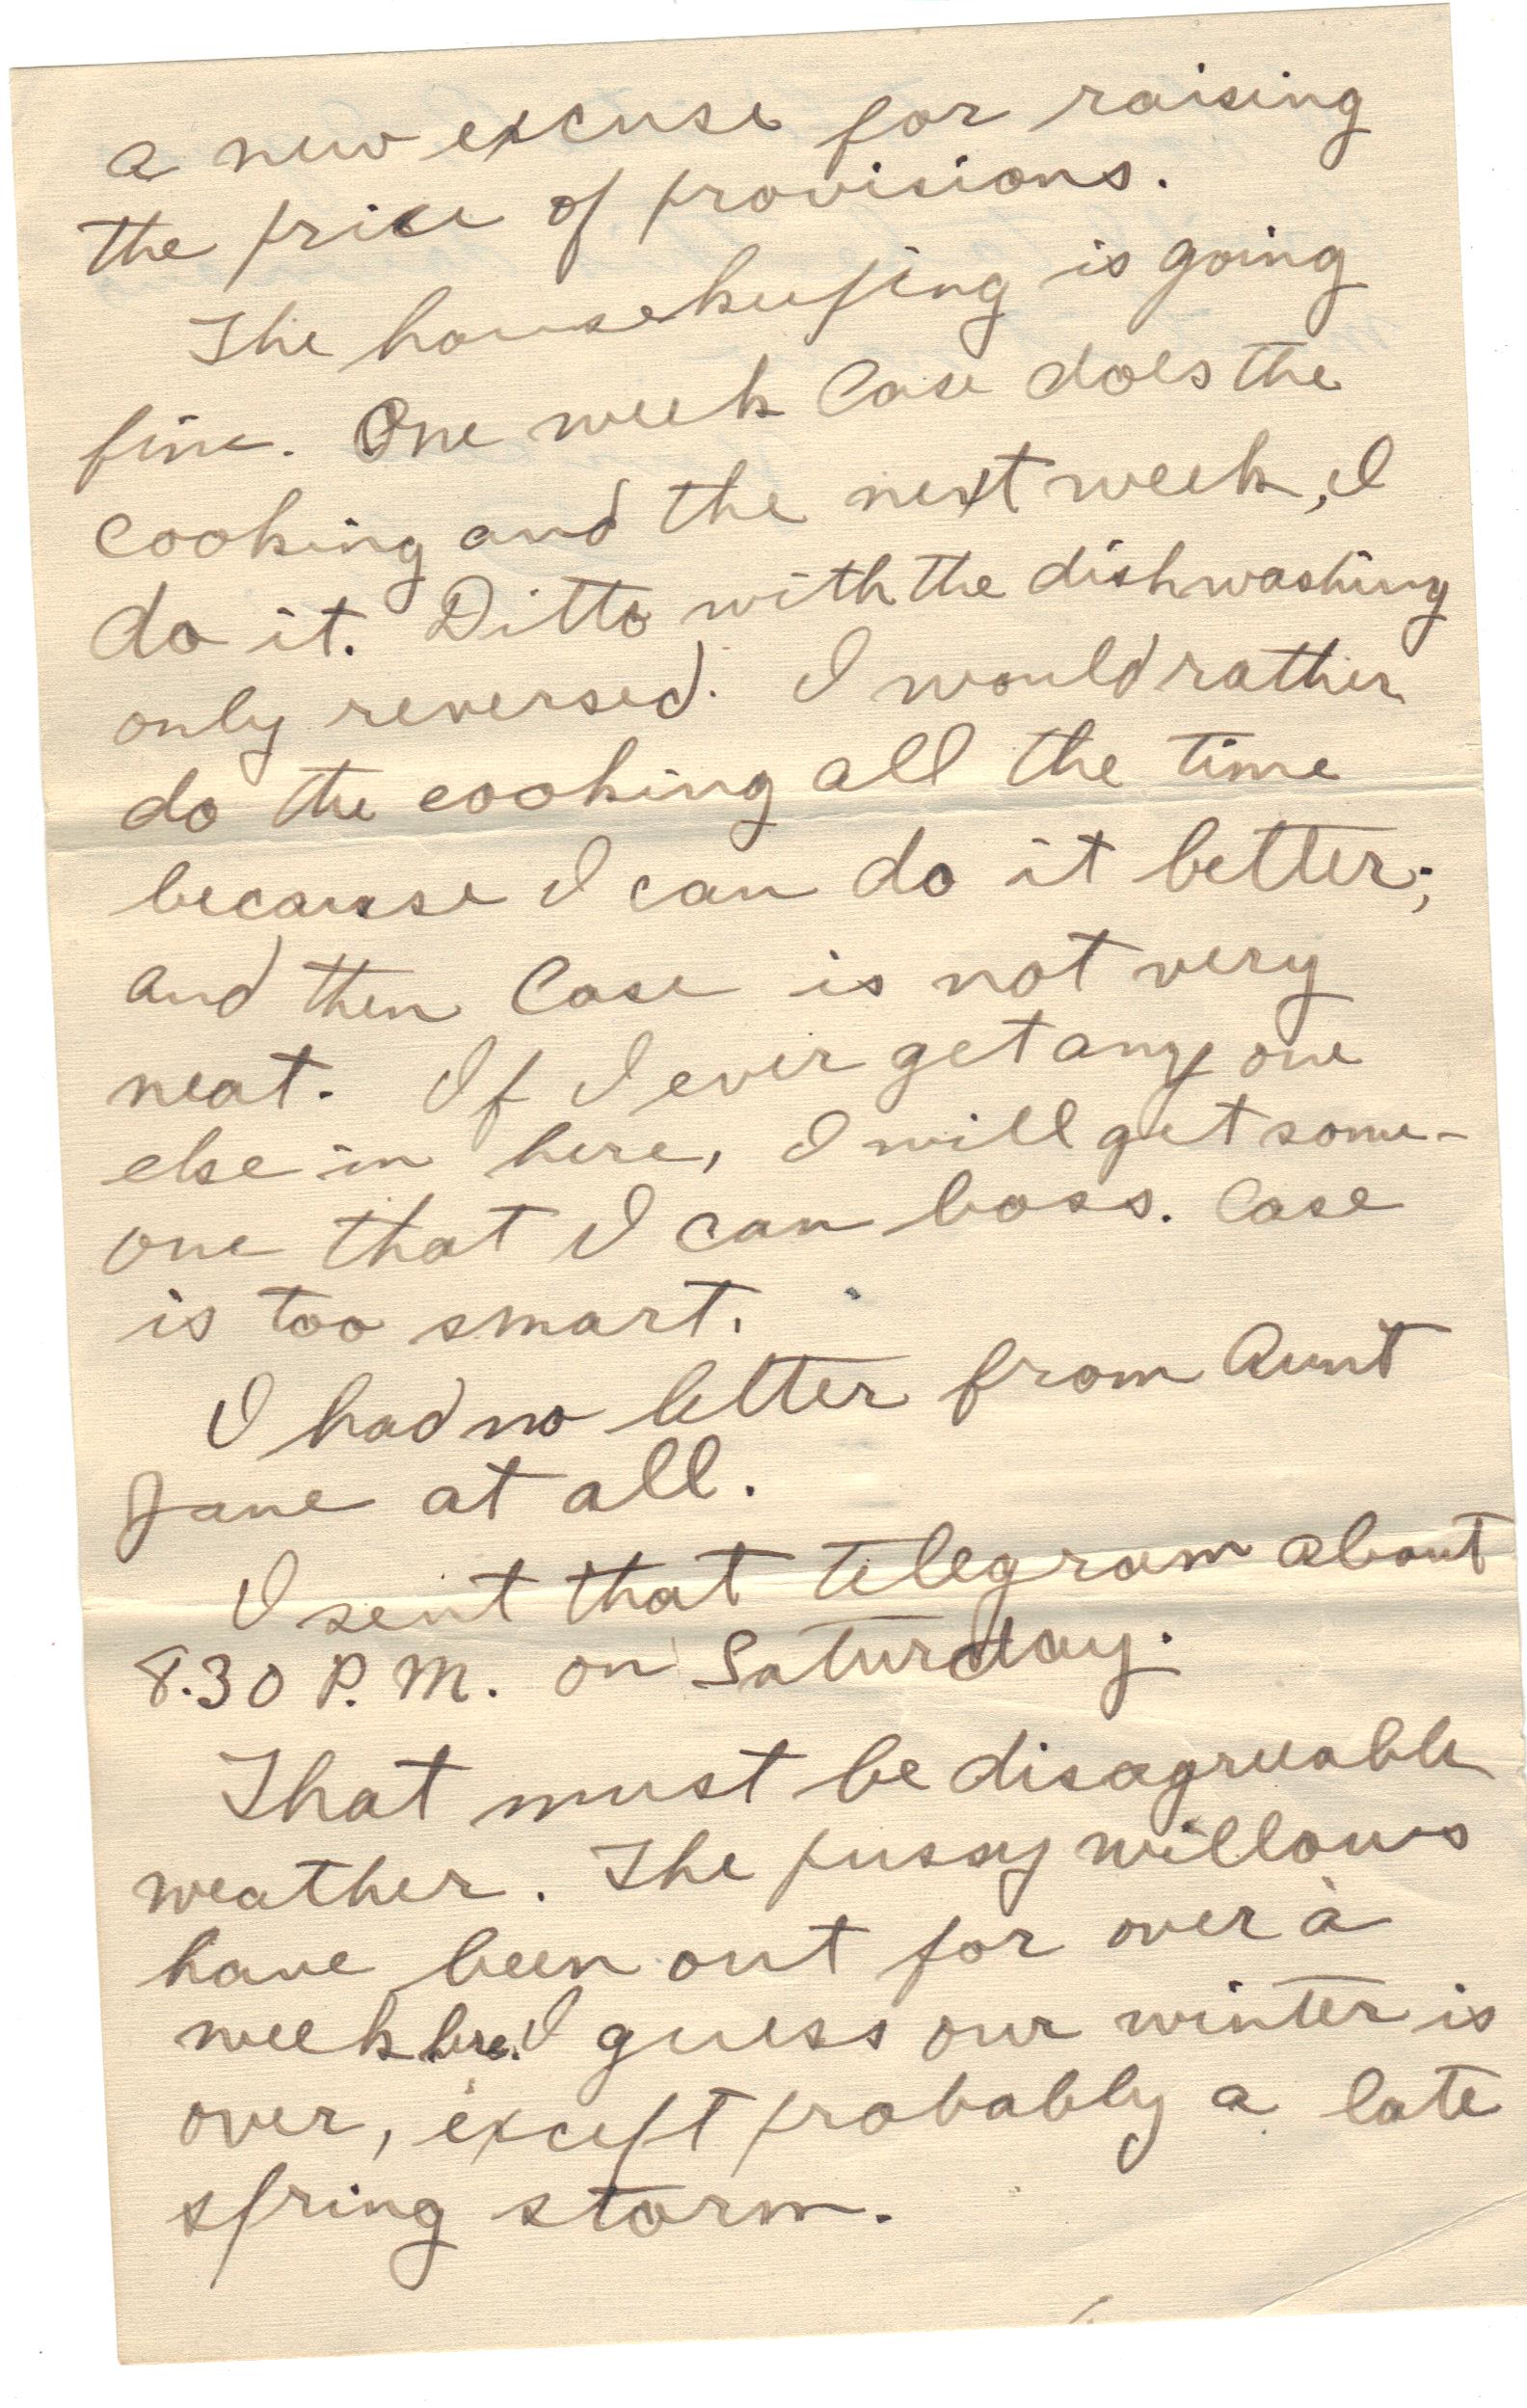 a new excuse for raising
the price of provisions.
The housekeeping is going
fine. One week Case does the
cooking and the next week, I
do it. Ditto with the dishwashing
only reversed. I would rather
do the cooking all the time
because I can do it better;
and then Case is not very
neat. If I ever get any one
else in here, I will get some-
one that I can boss. Case
is too smart.
I had no letter from Aunt
Jane at all.
I sent that telegram about
8.30 P.M. on Saturday.
That must be disagreeable
weather. The pussy willows
have been out for over a
week here. I guess our winter is
over, except probably a late
spring storm.